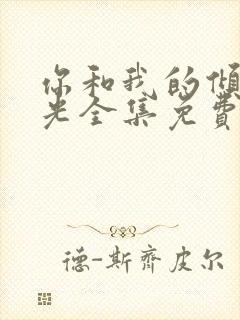 你和我的倾
光全集免费
德-斯齐皮尔